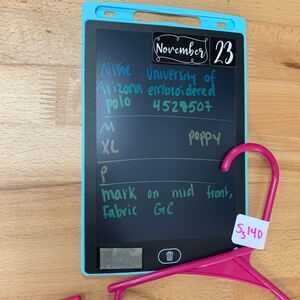 November 23
Nike University of
Arizona embroidered
polo 4528507
M
XL poppy
P
mark on mid front,
Fabric GC
S3140